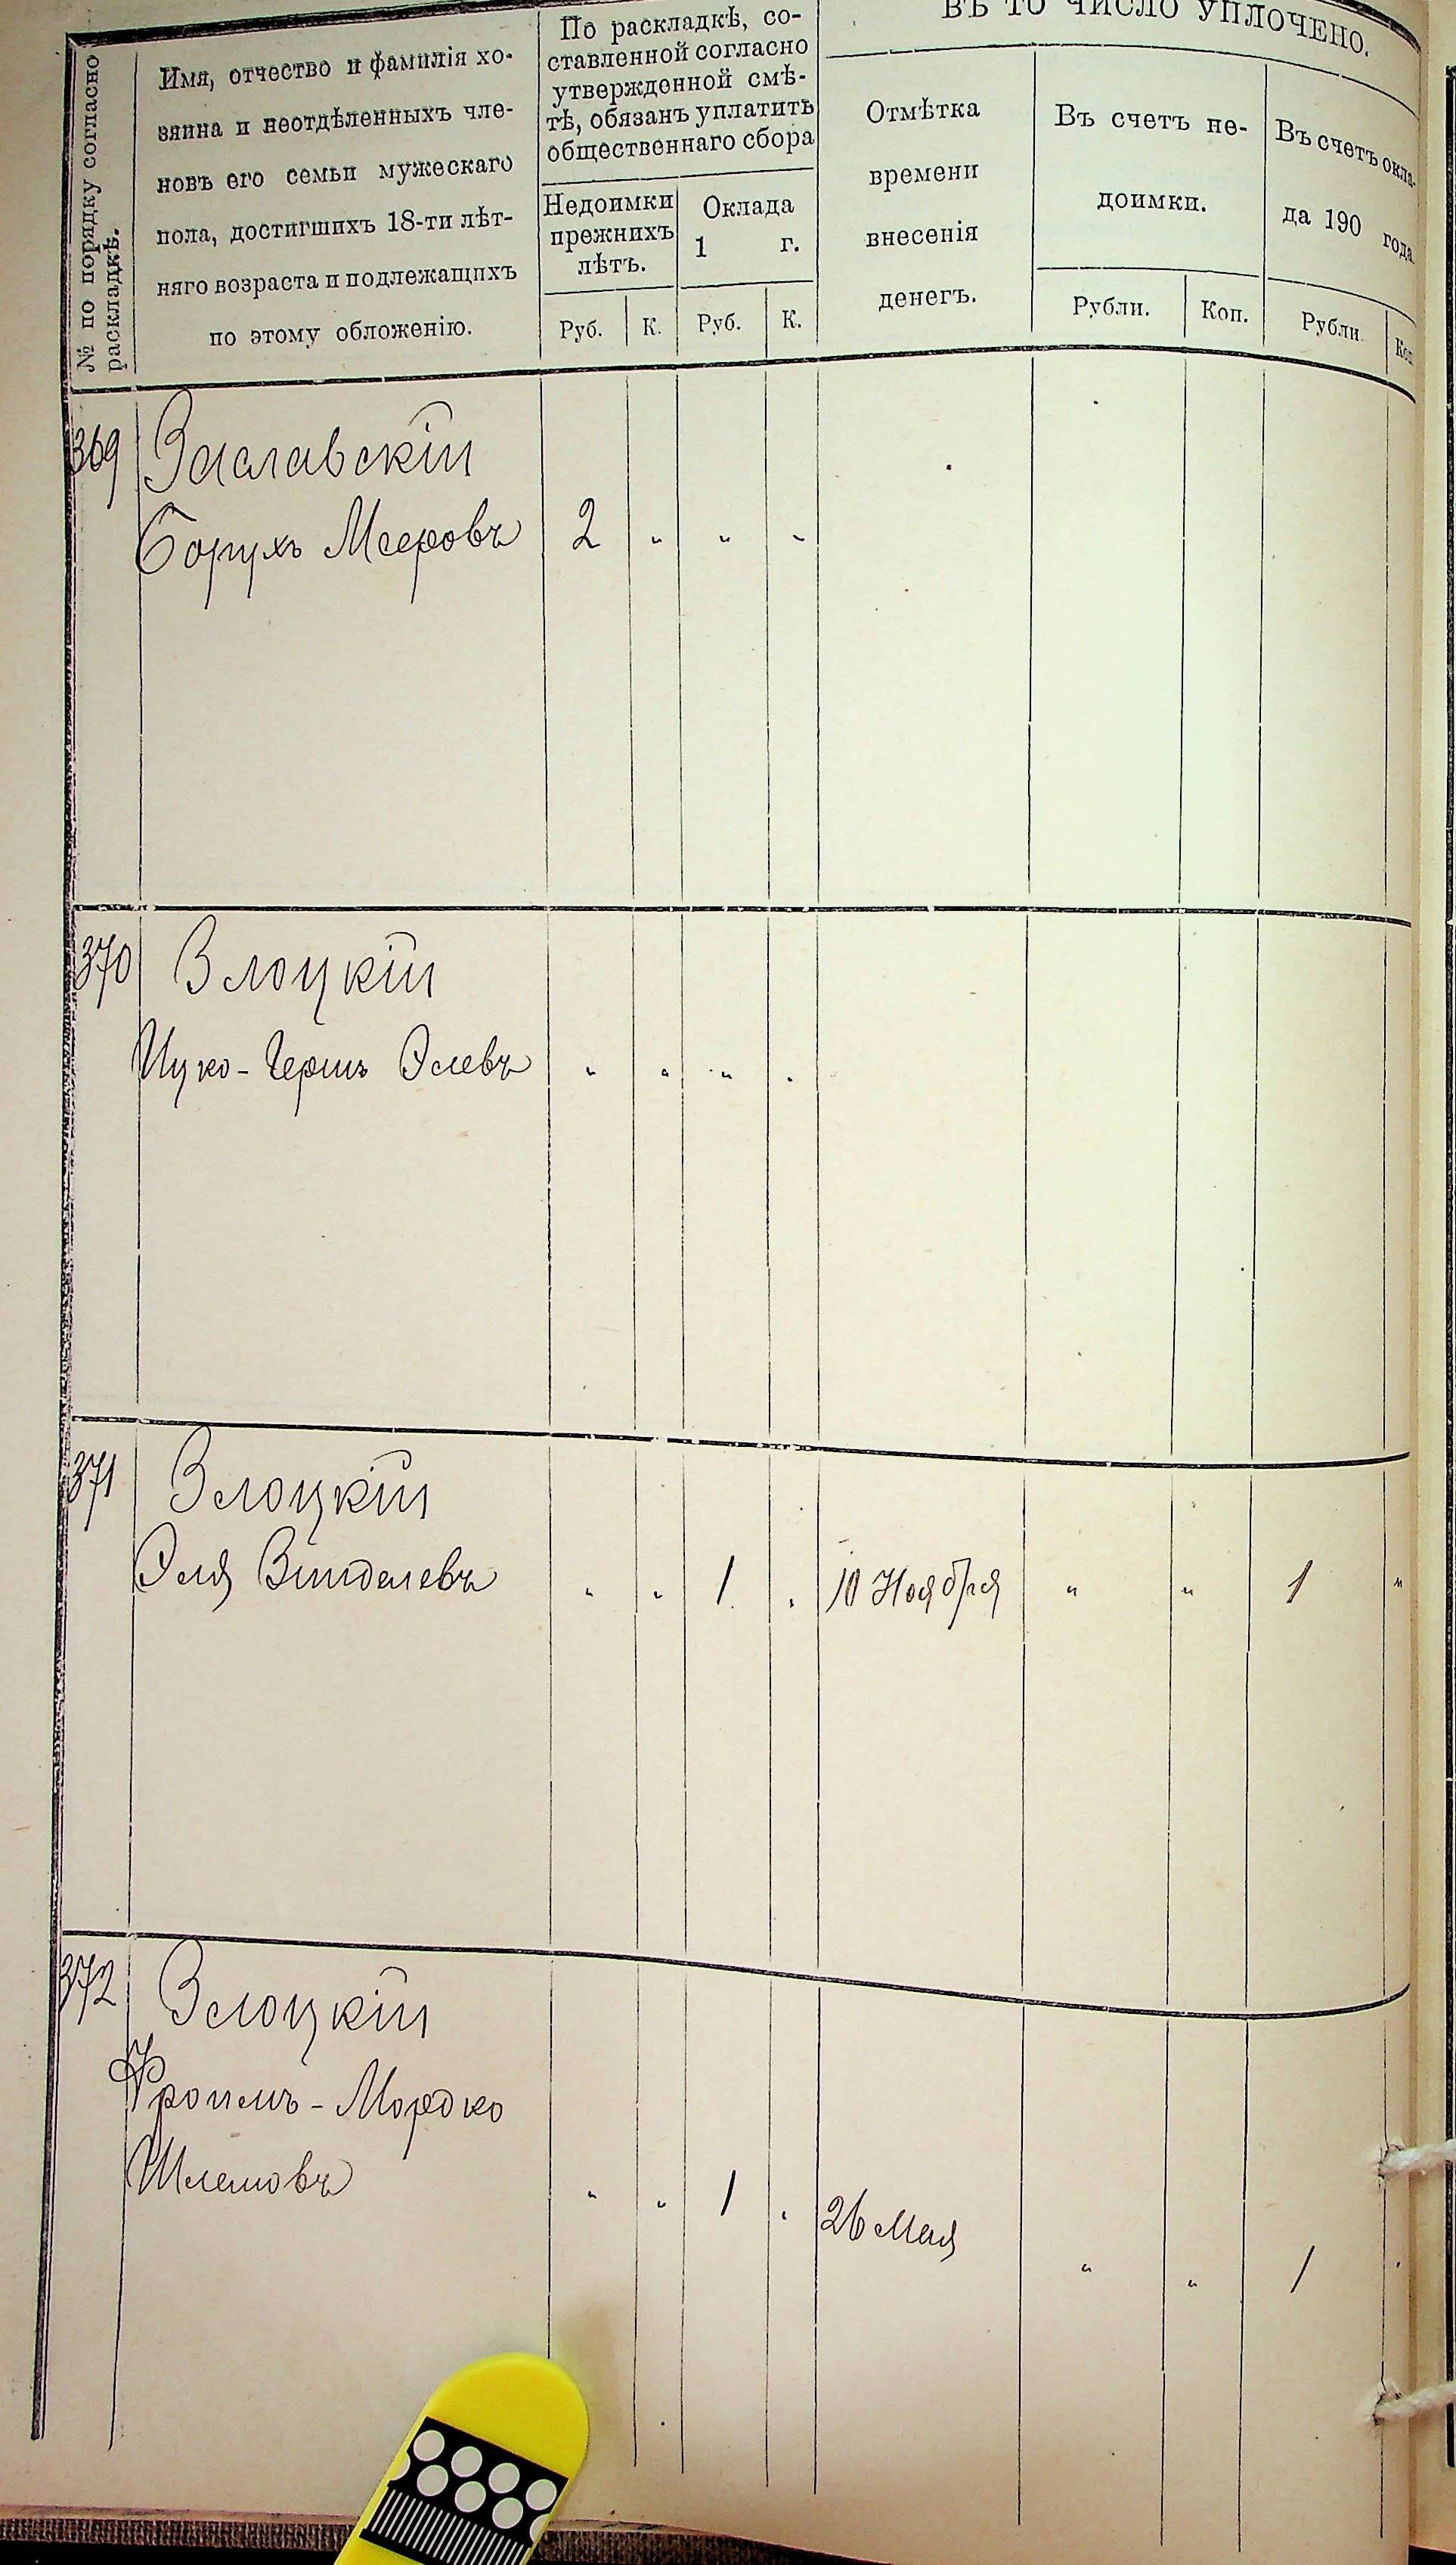 № по порядку согласно
раскладкѣ.
Имя, отчество и фамилія хо-
зяина и неотдѣленныхъ чле-
новъ его семьи мужескаго
пола, достигшихъ 18-ти лѣт-
няго возраста и подлежащихъ
по этому обложенію.
По раскладкѣ, со-
ставленной согласно
утвержденной смѣ-
тѣ, обязанъ уплатить
общественнаго сбора
Недоимки
прежнихъ
лѣтъ.
Оклада
1 г.
Руб. К. Руб. К.
ВЪ ТО ЧИСЛО УПЛОЧЕНО.
Отмѣтка
времени
внесенія
денегъ.
Въ счетъ не-
доимки.
Рубли. Коп.
Въ счетъ окла-
да 190 года
Рубли. Коп
369 Заславскій
Борухъ Мееровъ 2 " " "
370 Злоцкій
Ицко-Гершъ Элевъ " " " "
371 Злоцкій
Эля Зинделевъ " " 1 " 10 Ноября " " 1 "
372 Злоцкій
Фроимъ-Мордко
Шлемовъ " " 1 " 26 Мая " " 1 "